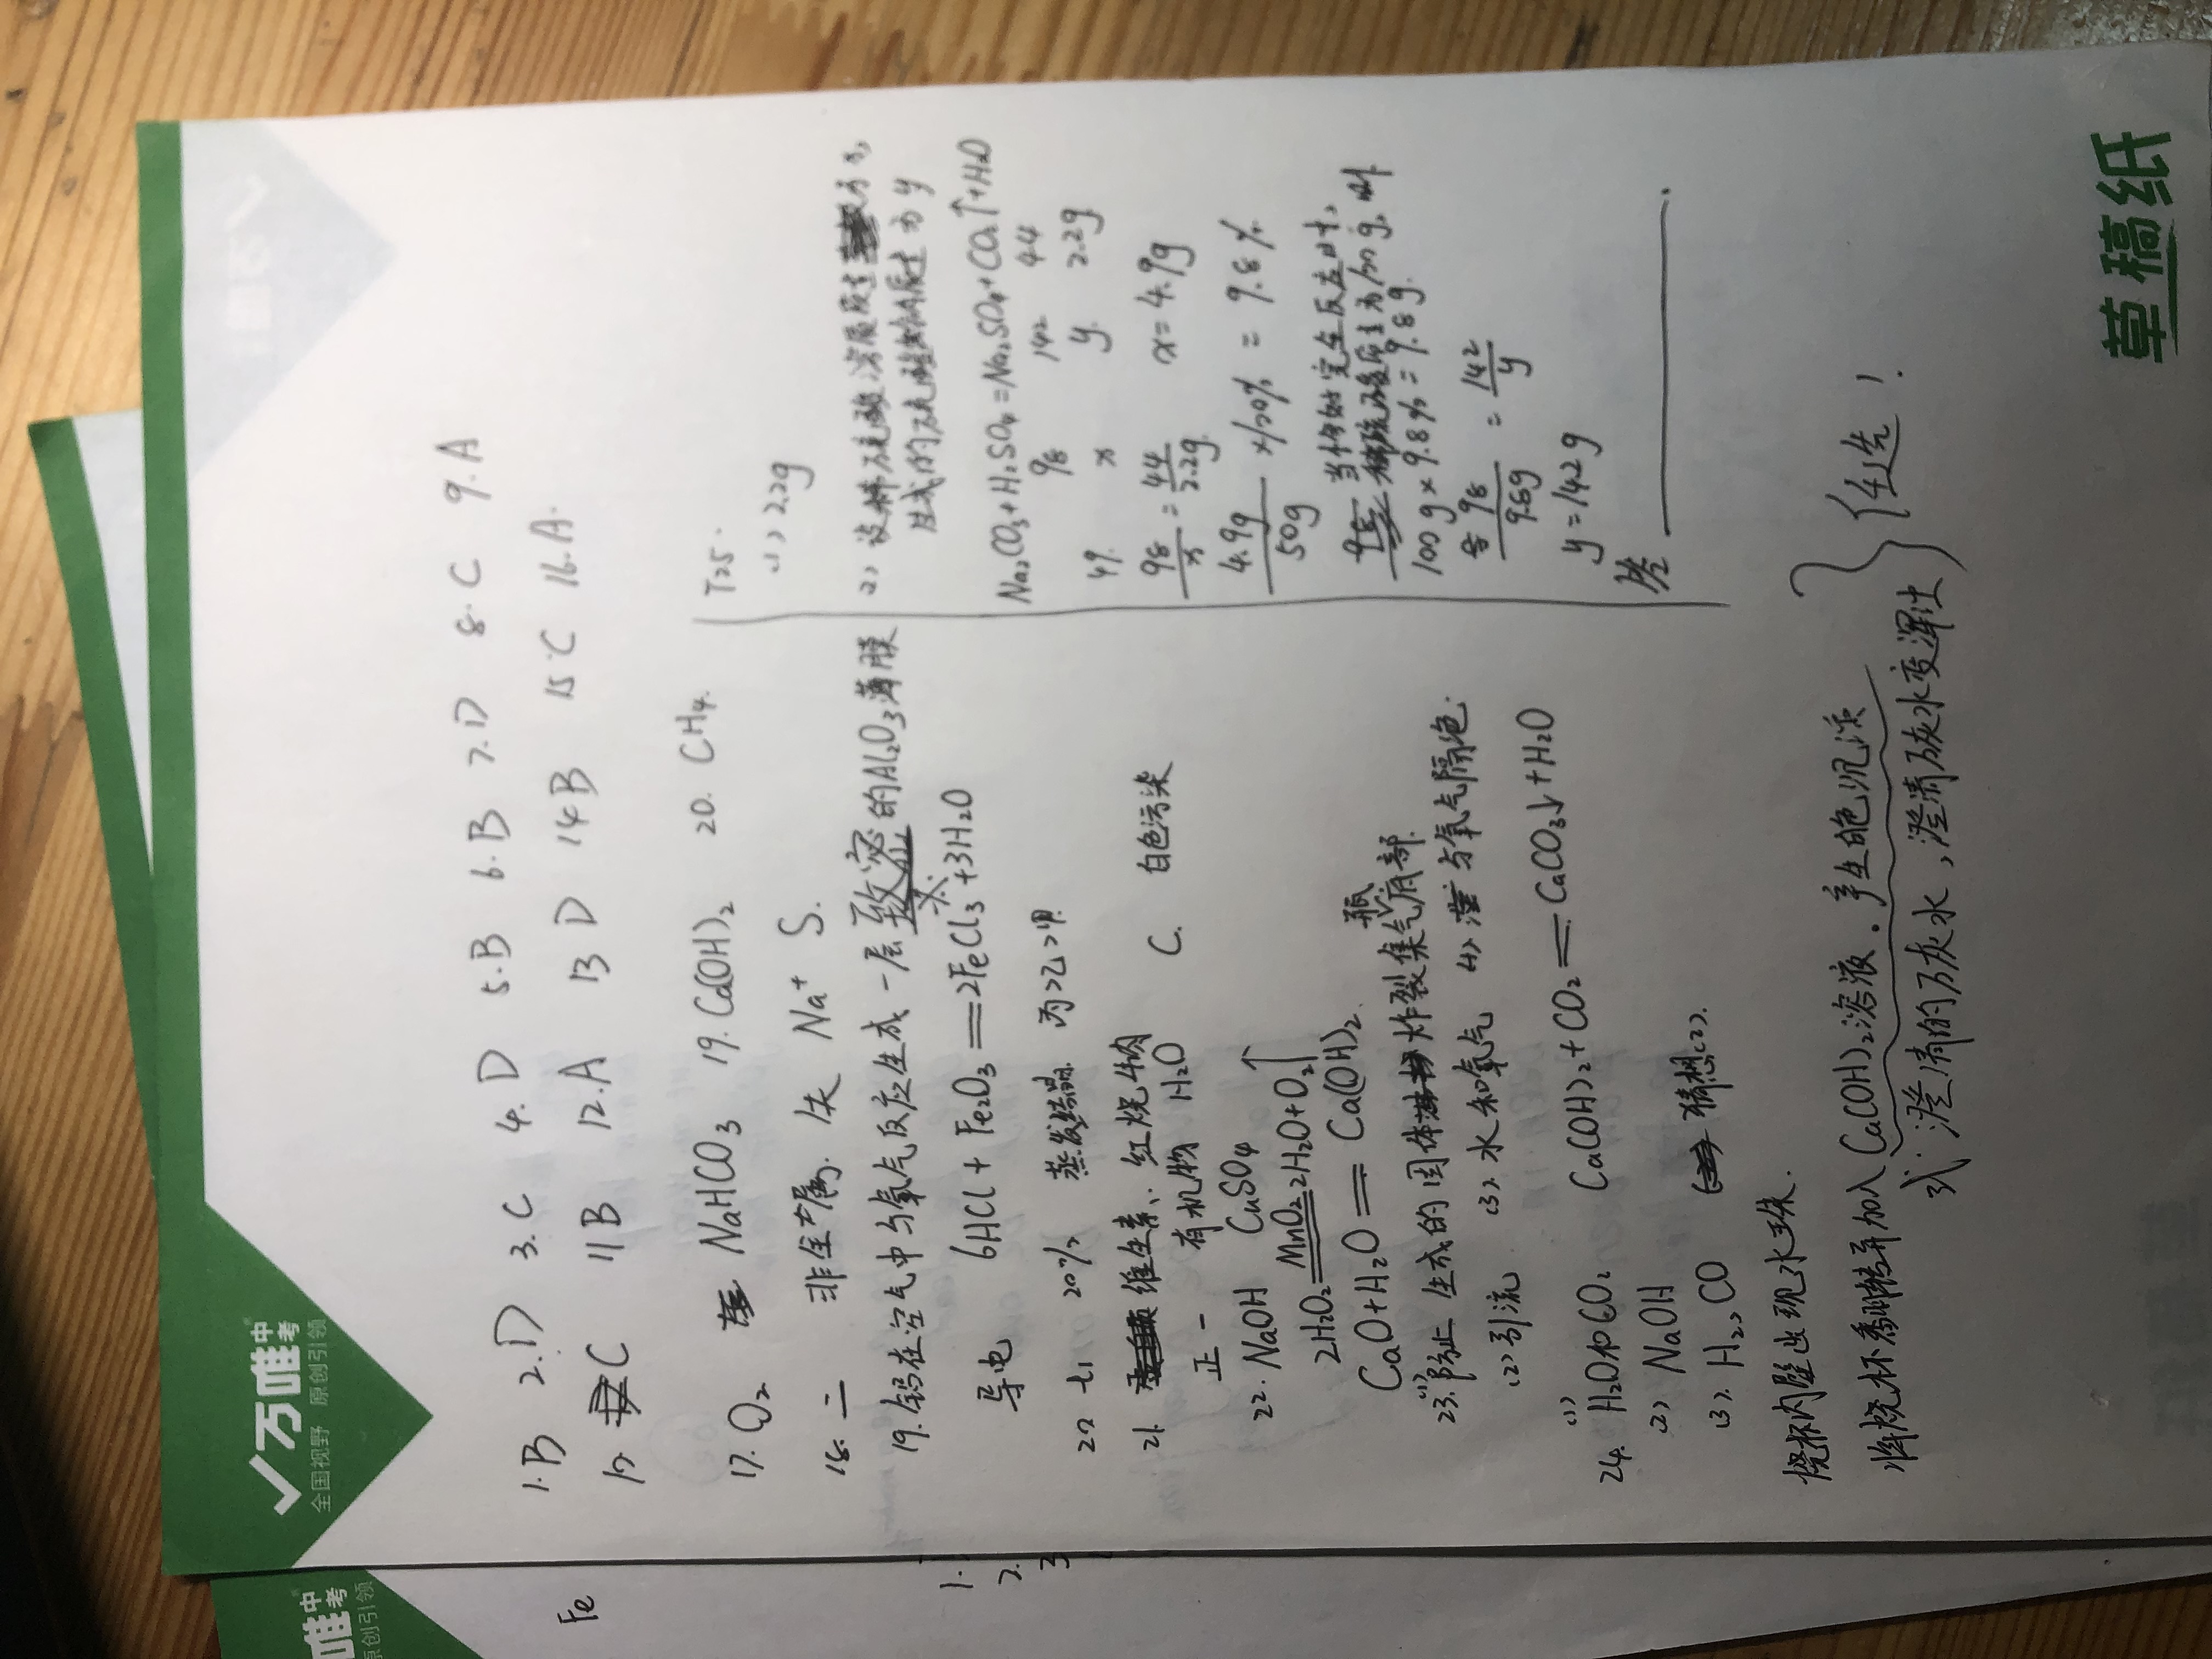 万唯中考
全国视野 原创引领
唯中考
原创引领
Fe
1.
2.
3
1.B 2.D 3.C 4.D 5.B 6.B 7.D 8.C 9.A
10 C 11B 12.A 13 D 14B 15C 16.A.
17. O₂ NaHCO₃ 19. Ca(OH)₂ 20. CH₄.
18. 二 非金属. 失 Na⁺ S.
19. 铝在空气中与氧气反应生成一层致密的Al₂O₃薄膜
导电 6HCl + Fe₂O₃ = 2FeCl₃ + 3H₂O
20 t₁ 20% 蒸发结晶. 丙>乙>甲
21. 维生素. 红烧牛肉
正一 有机物 H₂O C. 白色污染
22. NaOH CuSO₄
2H₂O₂ =MnO₂= 2H₂O + O₂↑
CaO + H₂O = Ca(OH)₂.
23.(1)防止 生成的固体炸裂集气瓶底部.
(2)引流 (3). 水和氧气 (4) 与氧气隔绝.
24. (1) H₂O和CO₂ Ca(OH)₂ + CO₂ = CaCO₃↓ + H₂O
(2) NaOH
(3). H₂, CO 猜想(2).
烧杯内壁出现水珠.
将烧杯翻转并加入Ca(OH)₂溶液. 产生白色沉淀
或 澄清的石灰水, 澄清石灰水变浑浊
任选!
T25.
(1) 2.2g
2) 设稀硫酸溶质质量为x,
生成的硫酸钠质量为y
Na₂CO₃ + H₂SO₄ = Na₂SO₄ + CO₂↑ + H₂O
98 142 44
49. x y. 2.2g
98/x = 44/2.2g x = 4.9g
4.9g/50g × 100% = 9.8%
当恰好完全反应时,
稀硫酸质量为100g, 时
100g × 9.8% = 9.8g.
98/9.8g = 142/y
y = 14.2g
答 .
草稿纸